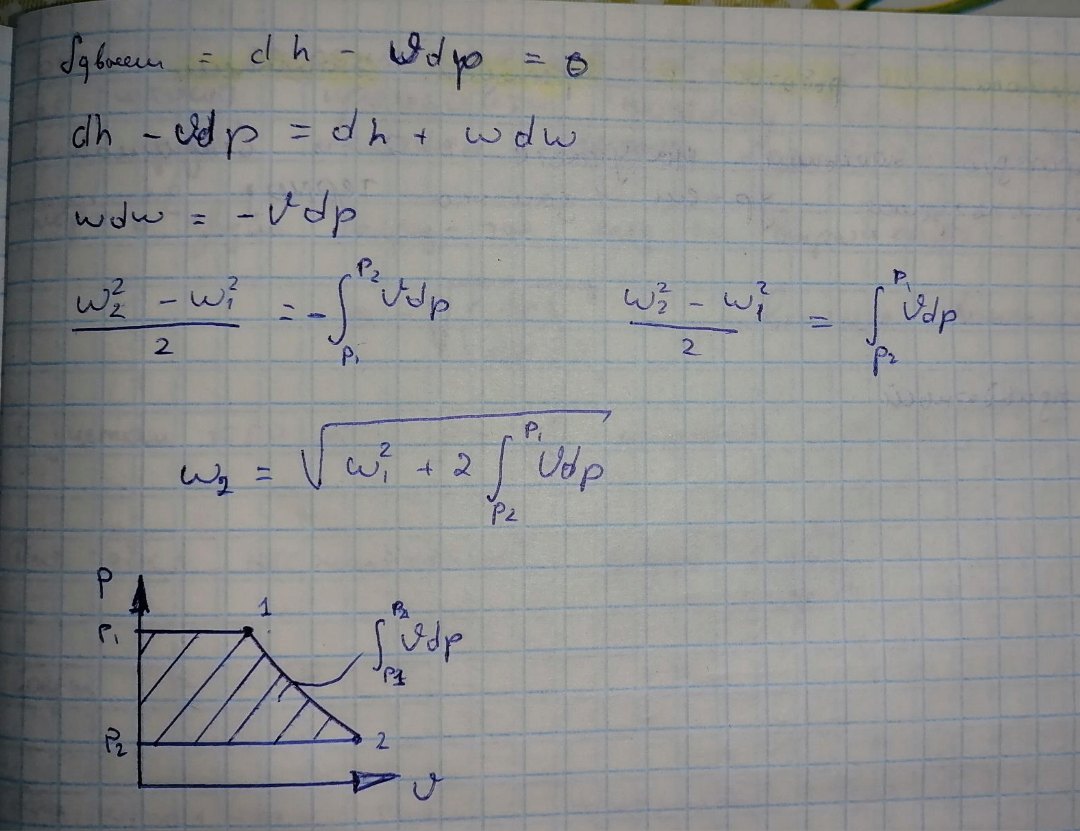 δqвнеш = dh - vdp = 0
dh - vdp = dh + wdw
wdw = -vdp
(w₂² - w₁²)/2 = -∫_{P₁}^{P₂} vdp    (w₂² - w₁²)/2 = ∫_{P₂}^{P₁} vdp
w₂ = √(w₁² + 2∫_{P₂}^{P₁} vdp)
P
1
P₁
∫_{P₁}^{P₂} vdp
P₂
2
v